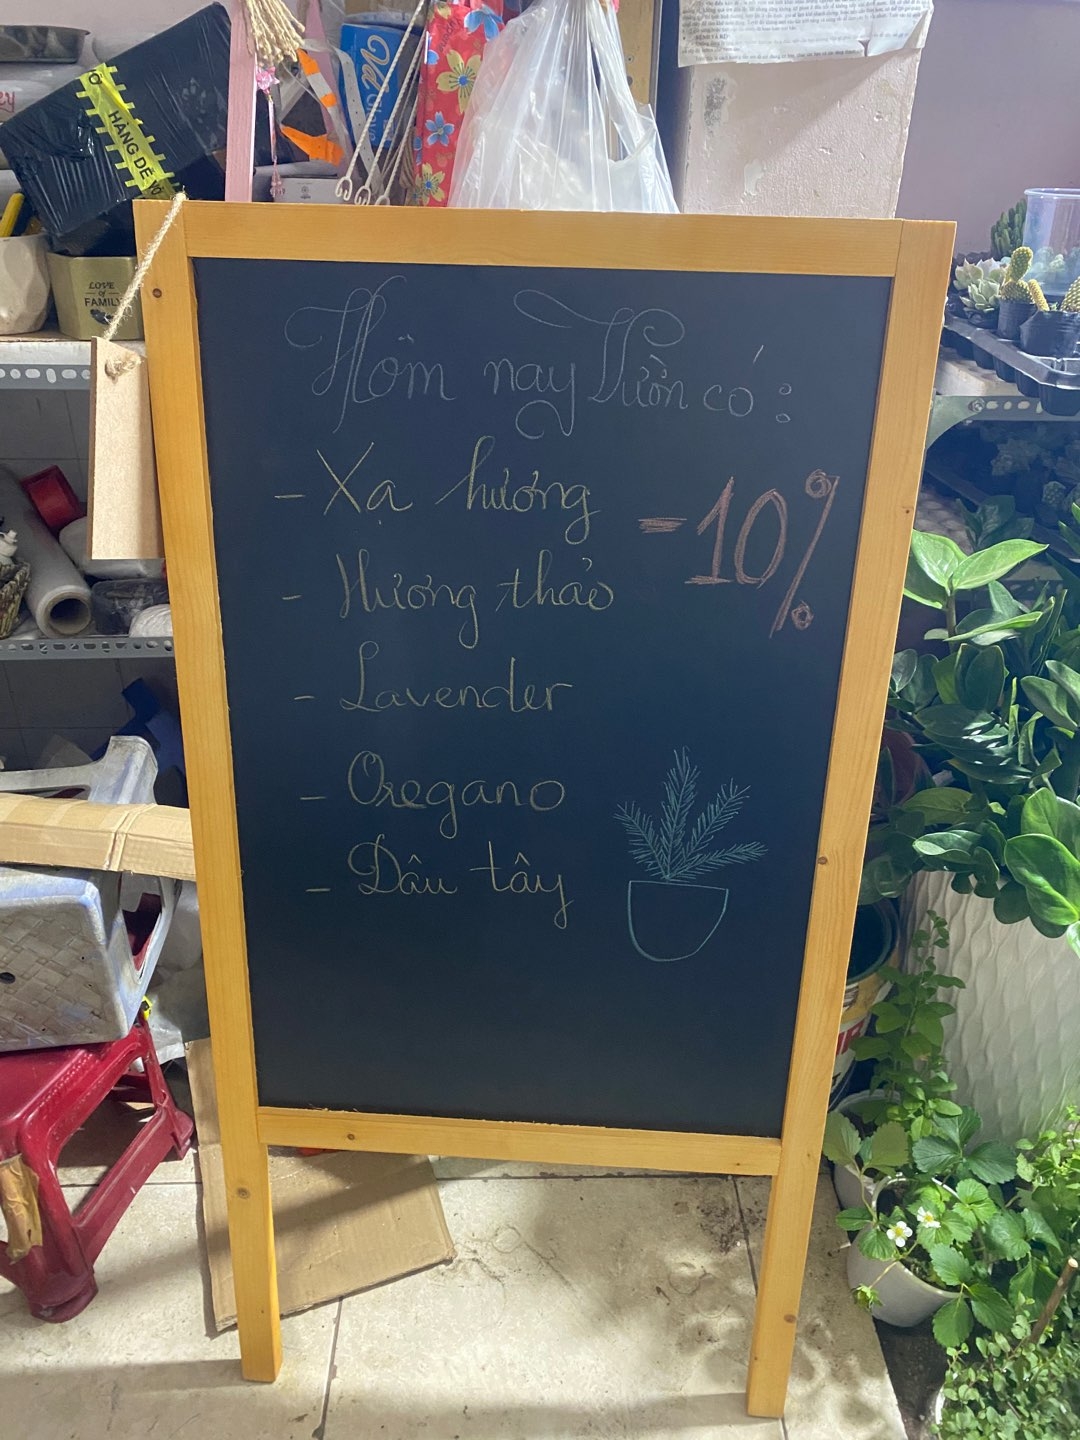 HÀNG DỄ VỠ
LOVE
of
FAMILY
Hôm nay Vườn có:
- Xạ hương
-10%
- Hương thảo
- Lavender
- Oregano
- Dâu tây